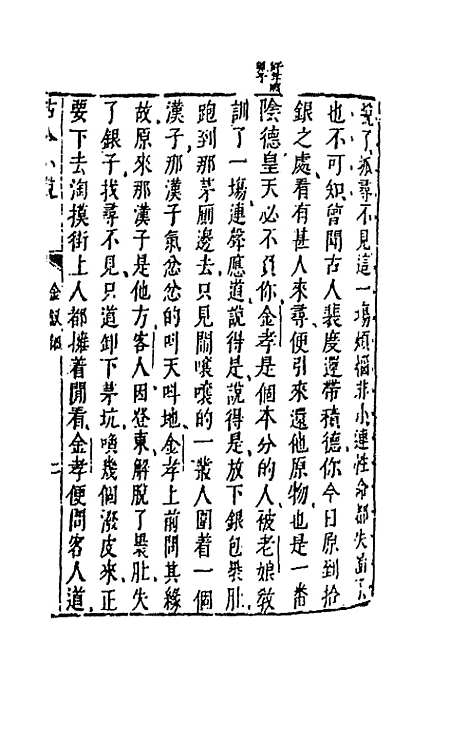 說了抓尋不見這一場煩惱非小連性命都失啚了
也不可知曾聞古人裴度還帶積德你今日原到拾
銀之處看有甚人來尋便引來還他原物也是一番
陰德皇天必不負你金孝是個本分的人被老娘教
訓了一場連聲應道說得是說得是放下銀包褁肚
跑到那茅厠邊去只見鬧嚷嚷的一叢人圍着一個
漢子那漢子氣忿忿的叫天叫地金孝上前問其緣
故原來那漢子是他方客人因登東解脫了褁肚失
了銀子找尋不見只道卸下茅坑喚幾個潑皮來正
要下去淘摸街上人都擁着閒看金孝便問客人道
古今小說
二